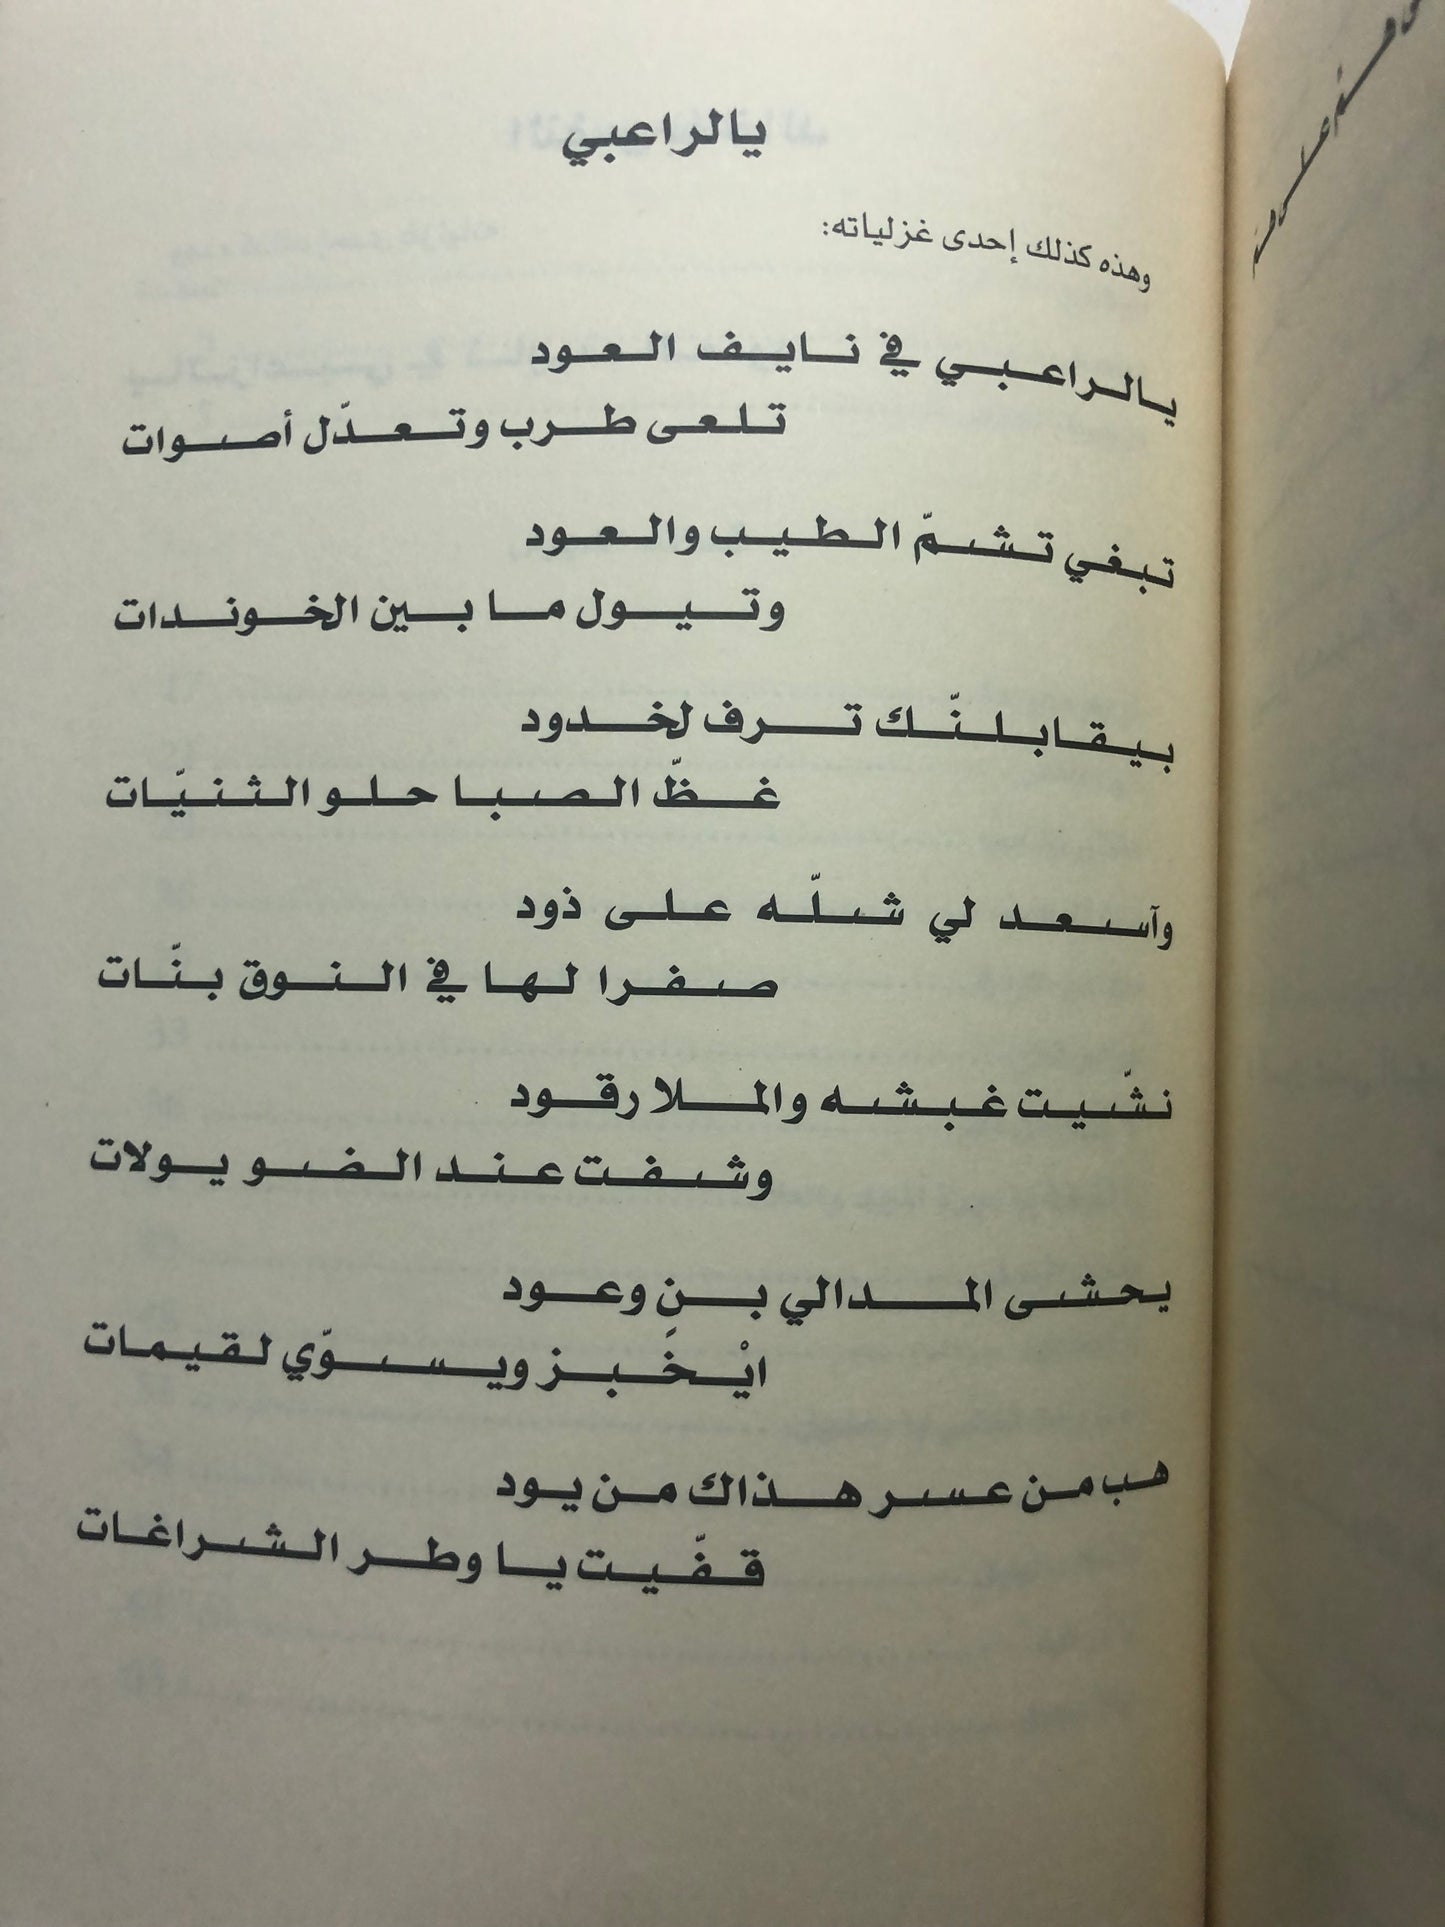 يالراعبي
وهذه كذلك إحدى غزلياته:
يالراعبي في نايف العود
تلعى طرب وتعدّل أصوات
تبغي تشمّ الطيب والعود
وتيول ما بين الخوندات
بيقابلنّك ترف لخدود
غظّ الصبا حلو الثنيّات
وآسعد لي شلّه على ذود
صفرا لها في النوق بنّات
نشّيت غبشه والملا رقود
وشفت عند الضو يولات
يحشى المدالي بن وعود
ايْخَبز ويسوّي لقيمات
هب من عسر هذاك من يود
قفّيت يا وطر الشراغات